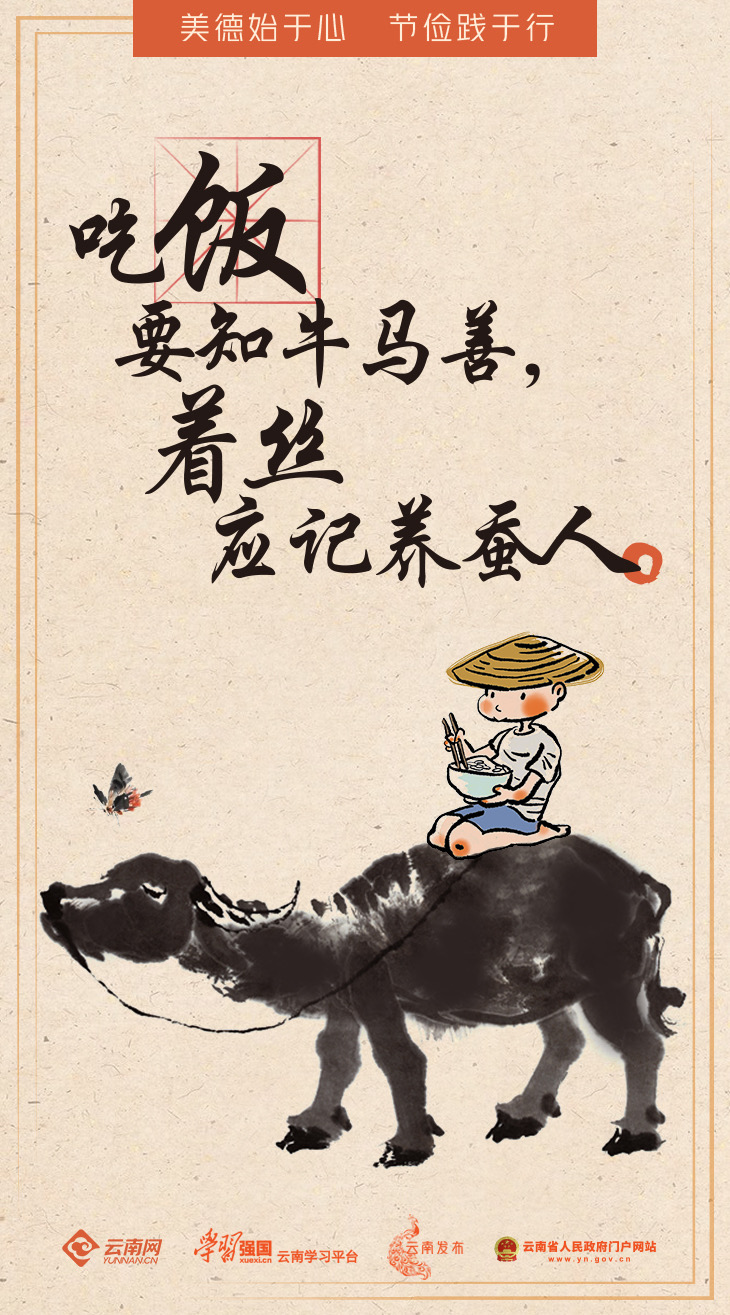 美德始于心 节俭践于行
吃饭
要知牛马善，
着丝
应记养蚕人。
云南网
YUNNAN.CN
学习强国
xuexi.cn
云南学习平台
云南发布
云南省人民政府门户网站
www.yn.gov.cn